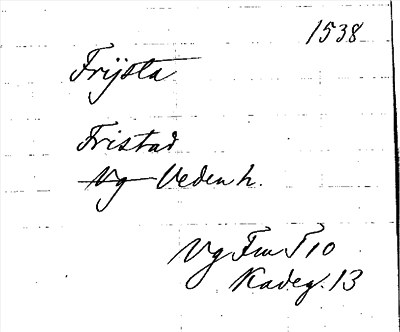 1538
Frijsta
Fristad
Vg Veden h.
Vg Fru T 10
Kadeg. 13